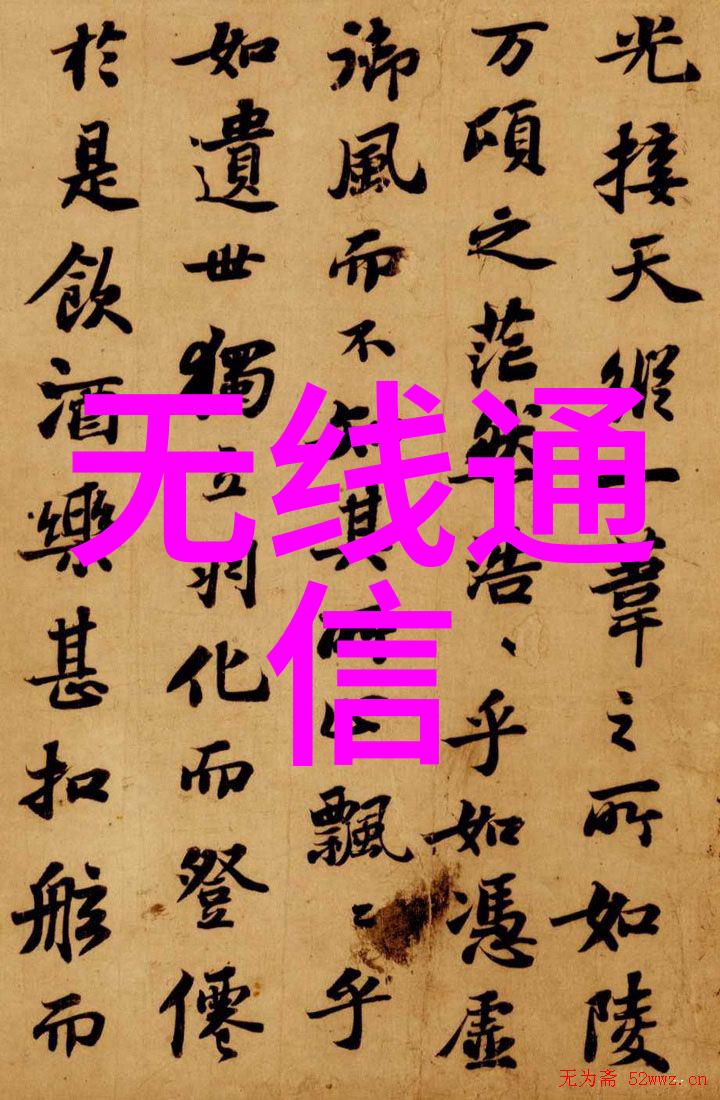 光接天縱一葦之所如陵
万頃之茫然浩〻乎如憑虛
御風而不知其所止飄〻乎
如遺世獨立羽化而登僊
於是飲酒樂甚扣舷而
无线通
信
无为斋 52wwz.cn